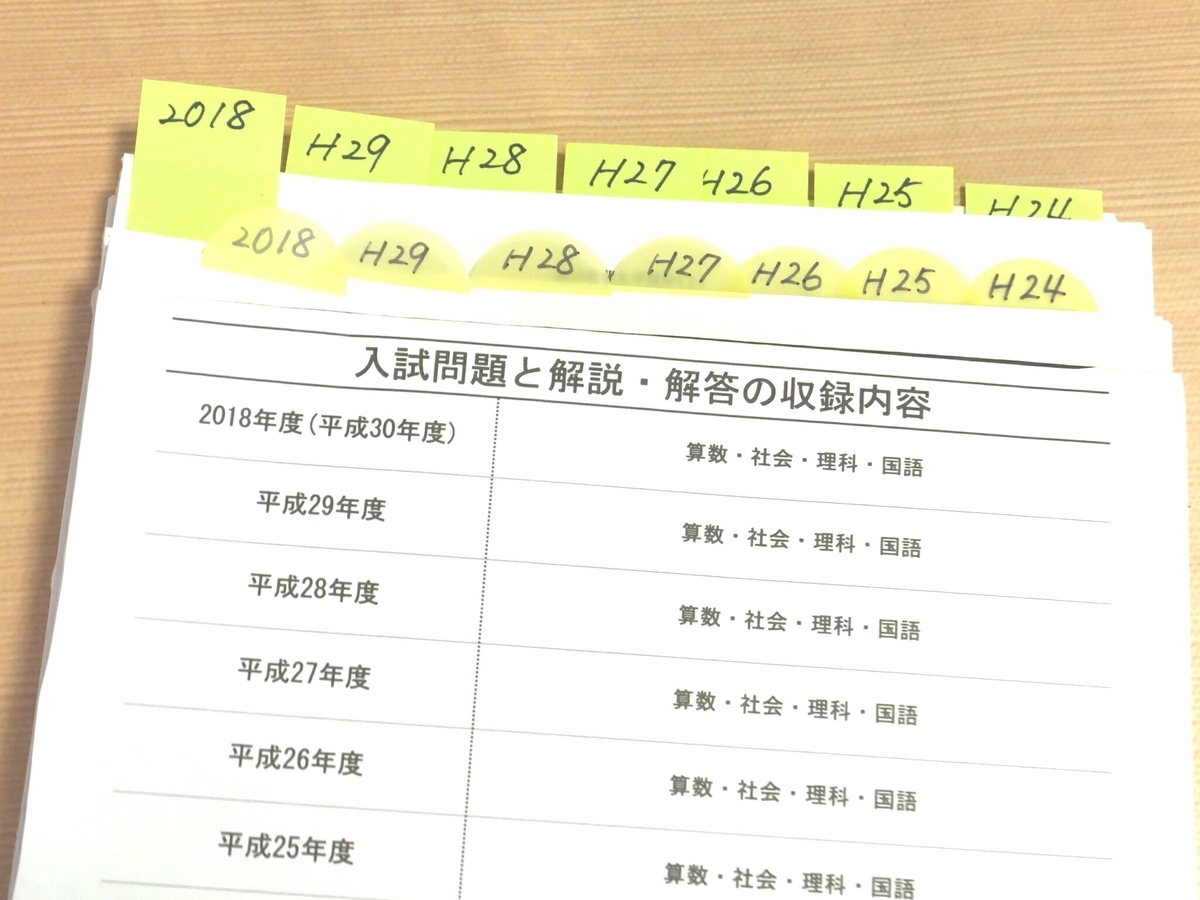 2018 H29 H28 H27 H26 H25 H24
2018 H29 H28 H27 H26 H25 H24
入試問題と解説・解答の収録内容
2018年度(平成30年度) 算数・社会・理科・国語
平成29年度 算数・社会・理科・国語
平成28年度 算数・社会・理科・国語
平成27年度 算数・社会・理科・国語
平成26年度 算数・社会・理科・国語
平成25年度 算数・社会・理科・国語